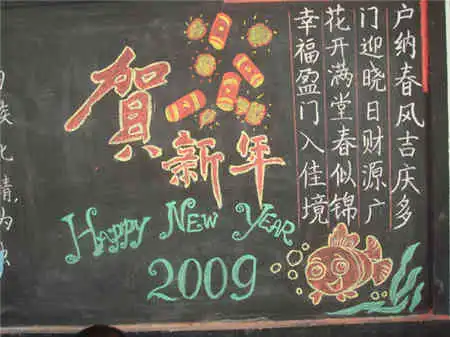 賀
新年
HAPPY NEW YEAR
2009
户纳春风吉庆多
门迎晓日财源广
花开满堂春似锦
幸福盈门入佳境